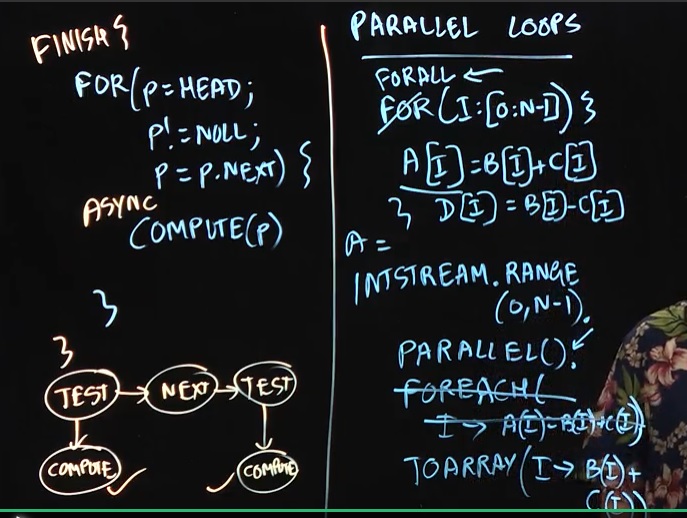 FINISH {
FOR(P=HEAD;
P!=NULL;
P=P.NEXT) {
ASYNC
COMPUTE(P)
}
}
TEST → NEXT → TEST
COMPUTE COMPUTE
PARALLEL LOOPS
FORALL ←
FOR(I:[0:N-1]) {
A[I]=B[I]+C[I]
} D[I]=B[I]-C[I]
A =
INTSTREAM.RANGE
(0,N-1).
PARALLEL().
FOREACH(
I → A(I)=B(I)+C(I))
TOARRAY(I→ B(I)+
C(I))